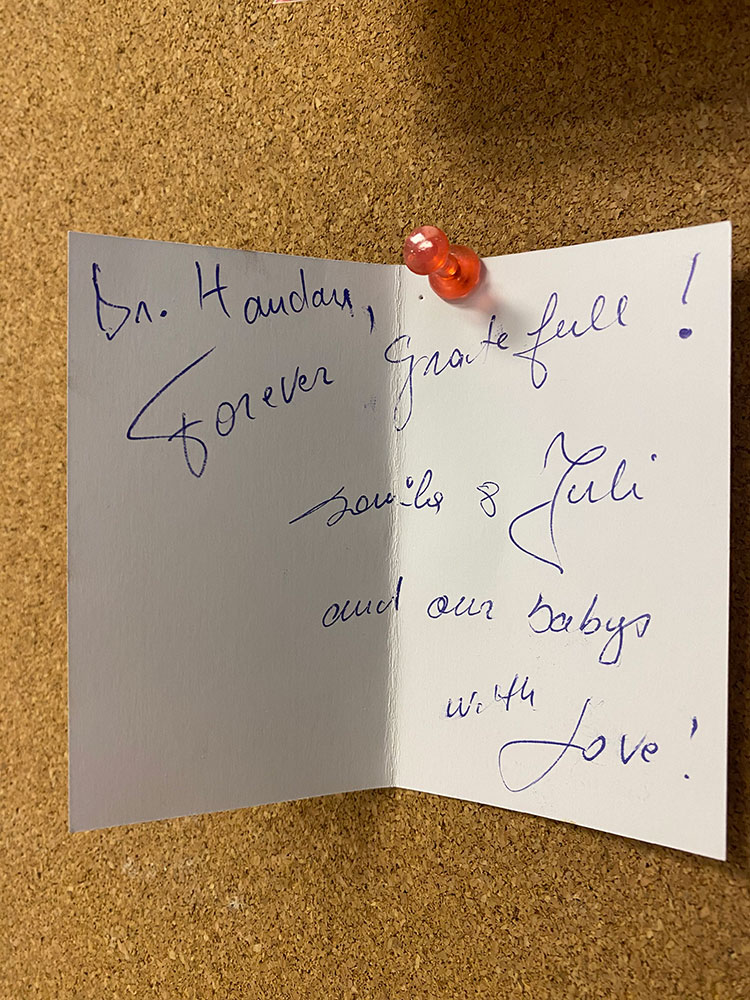 Dr. Handan,
Forever Gratefull!
& Juli
and our babys
with
Love!